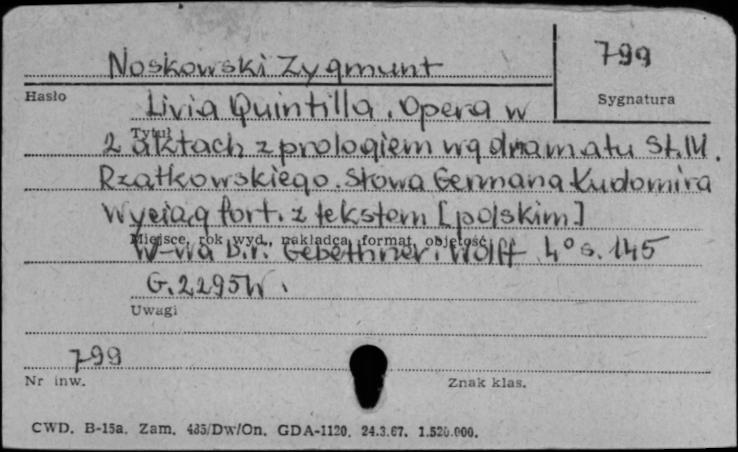 Noskowski Zygmunt
799
Hasło
Sygnatura
Livia Quintilla. Opera w
Tytuł
2 aktach z prologiem wg dramatu St.
Rzątkowskiego. Słowa Germana Ludomira
Wyciąg fort. z tekstem [polskim]
Miejsce, rok wyd., nakładca, format, objętość
W-wa b.r. Gebethner i Wolff 4° s. 145
G. 2295 W.
Uwagi
799
Nr inw.
Znak klas.
CWD. B-15a. Zam. 435/Dw/On. GDA-1120. 24.3.67. 1.520.000.